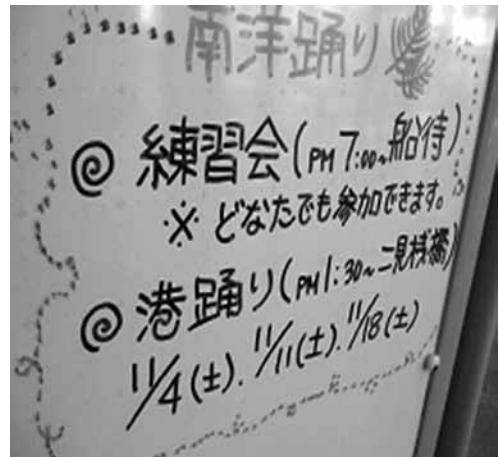 南洋踊り
◎ 練習会(PM 7:00~船待)
※ どなたでも参加できます。
◎ 港踊り(PM1:30~二見桟橋)
11/4(土). 11/11(土). 11/18(土)